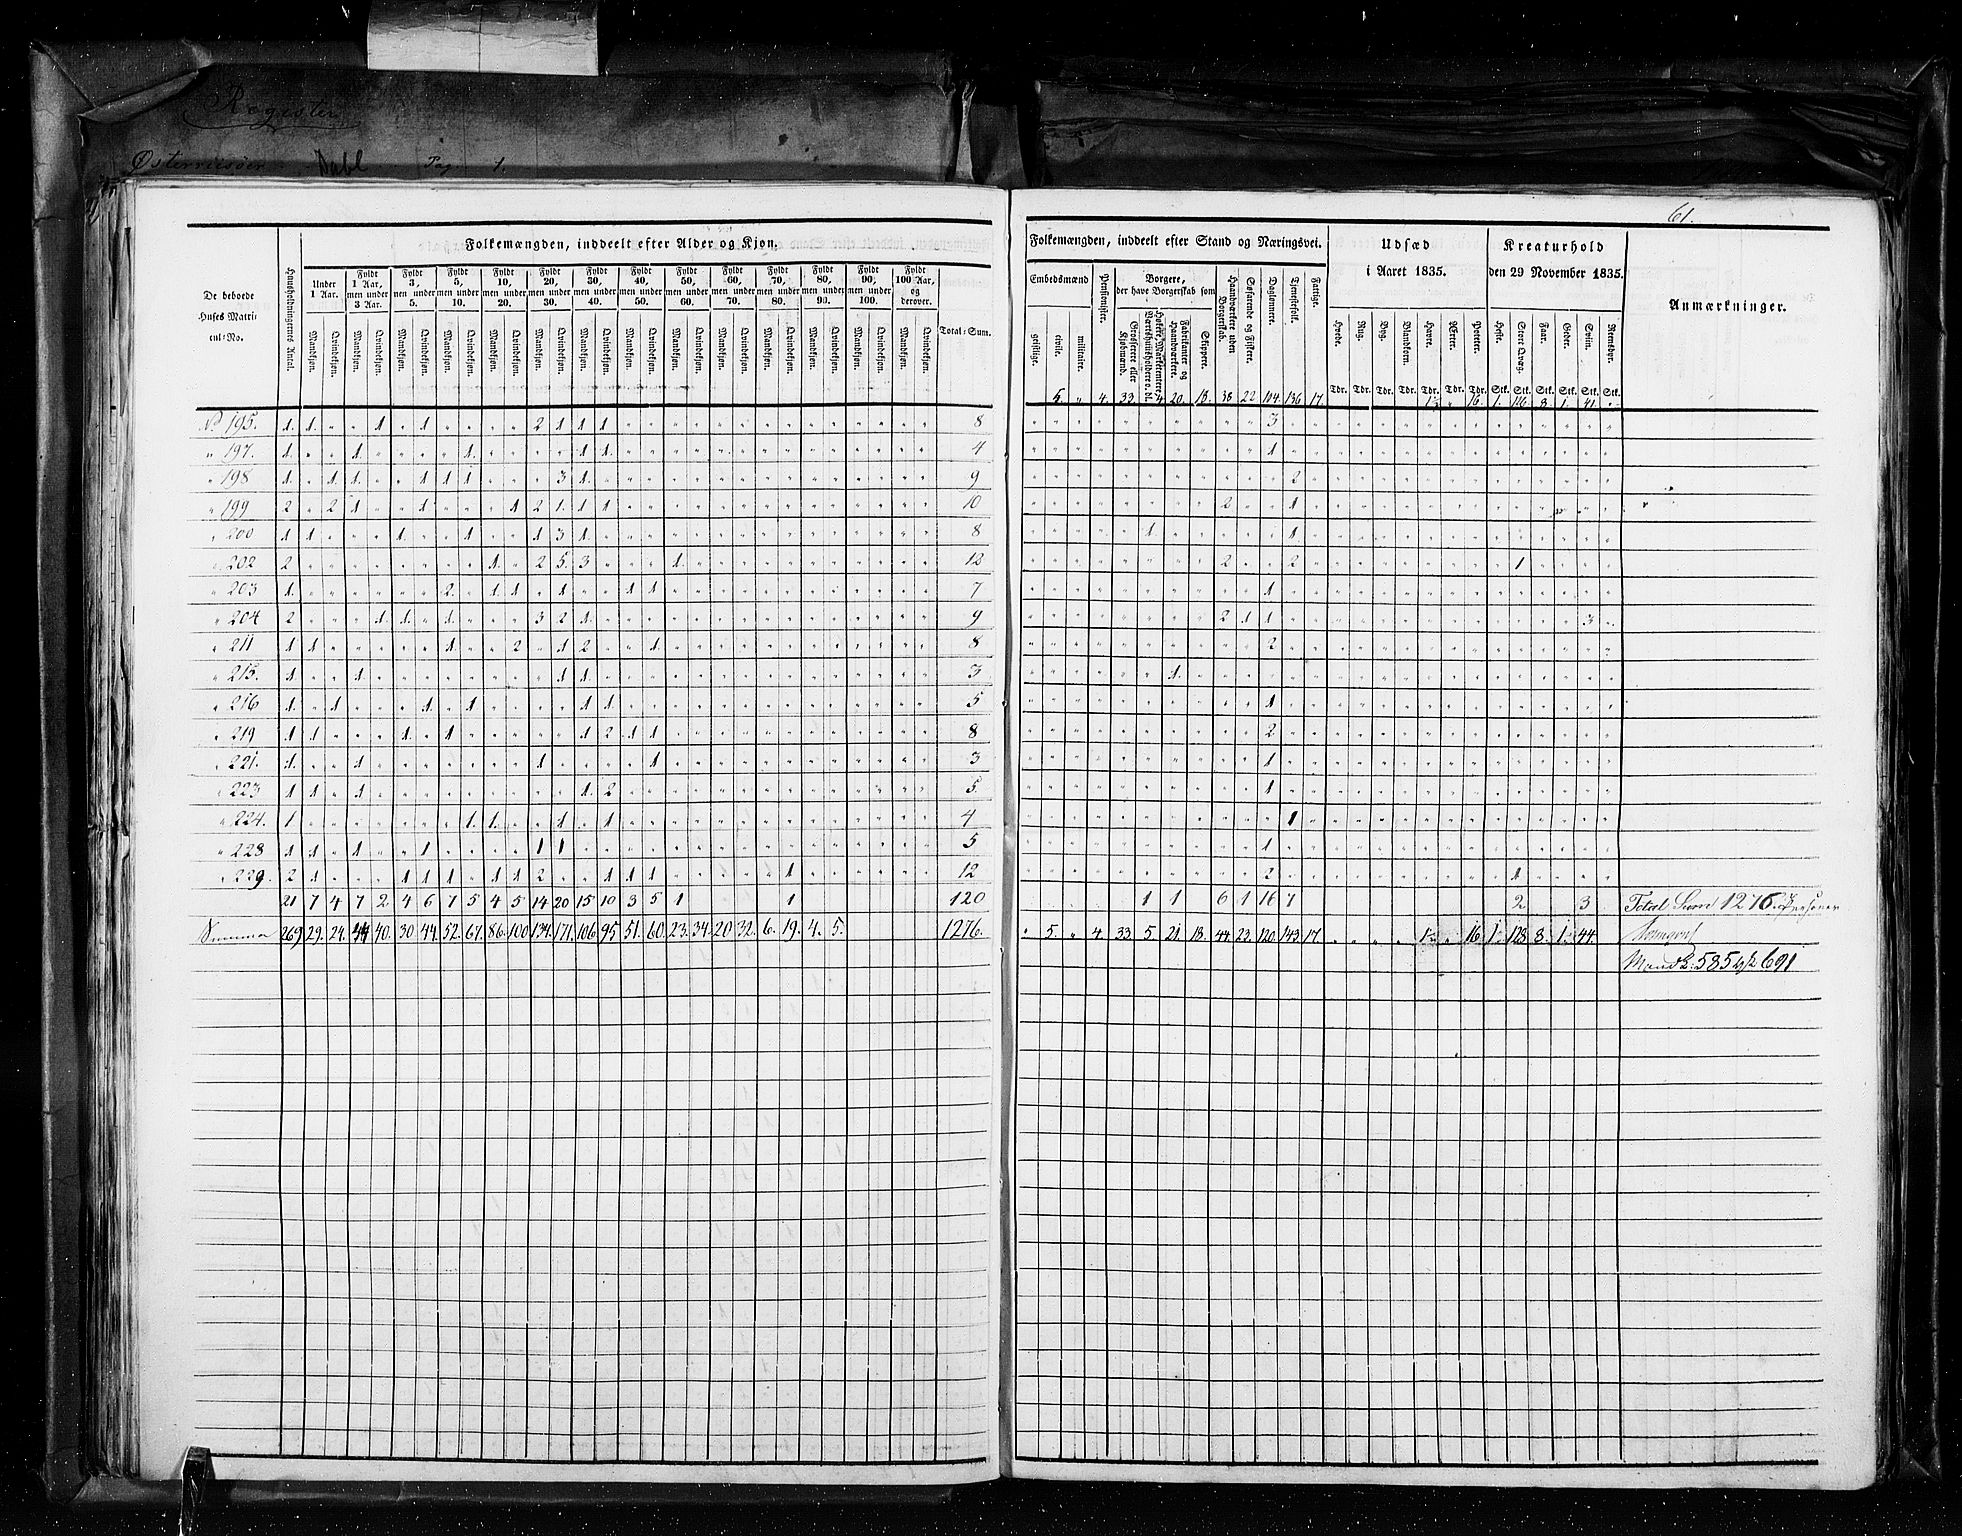 Register
Østerriisøer Dahl Pag 1.
61.
Folkemængden, inddeelt efter Alder og Kjøn.
Folkemængden, inddeelt efter Stand og Næringsvei.
Udsæd i Aaret 1835.
Kreaturhold den 29 November 1835.
Anmærkninger.
De beboede Huses Matricul=No.
Huusholdningernes Antal.
Under 1 Aar.
Fyldt 1 Aar, men under 3 Aar.
Fyldt 3, men under 5.
Fyldt 5, men under 10.
Fyldt 10, men under 20.
Fyldt 20, men under 30.
Fyldt 30, men under 40.
Fyldt 40, men under 50.
Fyldt 50, men under 60.
Fyldt 60, men under 70.
Fyldt 70, men under 80.
Fyldt 80, men under 90.
Fyldt 90, men under 100.
Fyldt 100 Aar, og derover.
Total=Sum.
Mandkjøn. Qvindekjøn.
Embedsmænd geistlige. civile. militaire.
Pensionister.
Borgere, der have Borgerskab som
Grosserere eller Kjøbmænd.
Fabrikanter og Haandværkere.
Skippere.
Haandværkere uden Borgerskab.
Søfarende og Fiskere.
Daglønnere.
Tjenestefolk.
Fattige.
Hvede. Rug. Byg. Blandkorn. Havre. Ærter. Poteter.
Tdr. Tdr. Tdr. Tdr. Tdr. Tdr. Tdr.
Heste. Stort Qvæg. Faar. Geder. Sviin. Rensdyr.
Stk. Stk. Stk. Stk. Stk. Stk.
5. " 4. 33. 4. 20. 18. 38 22 104. 136 17. 16. 1. 126. 8. 1. 41. "
No 195. 1. 1. 1. 1. 2 1 1 1 8 3
" 197. 1. 1. 1. 1 1. 4 1
" 198 1. 1 1. 1 1 1 3 1. 9 2
" 199 2 2 1 1 1 2 1. 1 1 10 2 1
" 200 1 1 1. 1. 1 3 1. 8 1. 1
" 202 2 1. 2 5. 3 1. 12 2 2 1
" 203 1. 2. 1 1 1 1 1 7 1
" 204 2 1. 1. 1. 3 2 1. 9 2 1 1 3
" 211 1 1 1. 2 1 2 1. 8 2
" 215. 1. 1. 1 1. 3 1.
" 216 1. 1. 1. 1. 1 1 5 1
" 219 1 1 1. 1. 1 2 1 1 8 2
" 221. 1. 1. 1. 1. 3 1
" 223 1 1 1 1. 2 5. 1
" 224. 1 1. 1. 1 1 4 1
" 228 1 1 1 1 1 1 5 1
" 229. 2 1 1 1 1 1 1 2 1 1 1 1 12 2 1
21 7 4 7 2 4 6 7 5 4 5 14 20 15 10 3 5 1 1 120 1 1 6 1 16 7 2 3 Total Sum 1276. Personer
Summa 269 29. 24. 44 40. 30. 44. 52. 67. 86. 100 134. 171. 106. 95 51. 60. 23. 34. 20. 32. 6. 19. 4. 5. 1276. " 5. " 4. 33. 5. 21. 18. 44. 23. 120. 143. 17. 16 1. 128. 8. 1. 44.
Mandk: 585 691